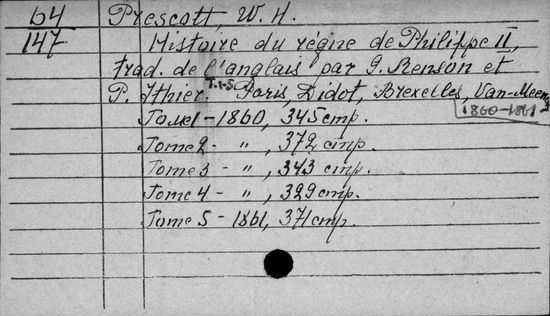 64 Prescott, W. H.
147 Histoire du règne de Philippe II,
trad. de l'anglais par G. Renson et
P. Ithier. T.1-5 Paris, Didot, Bruxelles, Van-Meenen
1860-1861
Tome 1 - 1860, 345 стр.
Tome 2 - ", 372 стр.
Tome 3 - ", 343 стр.
Tome 4 - ", 329 стр.
Tome 5 - 1861, 371 стр.